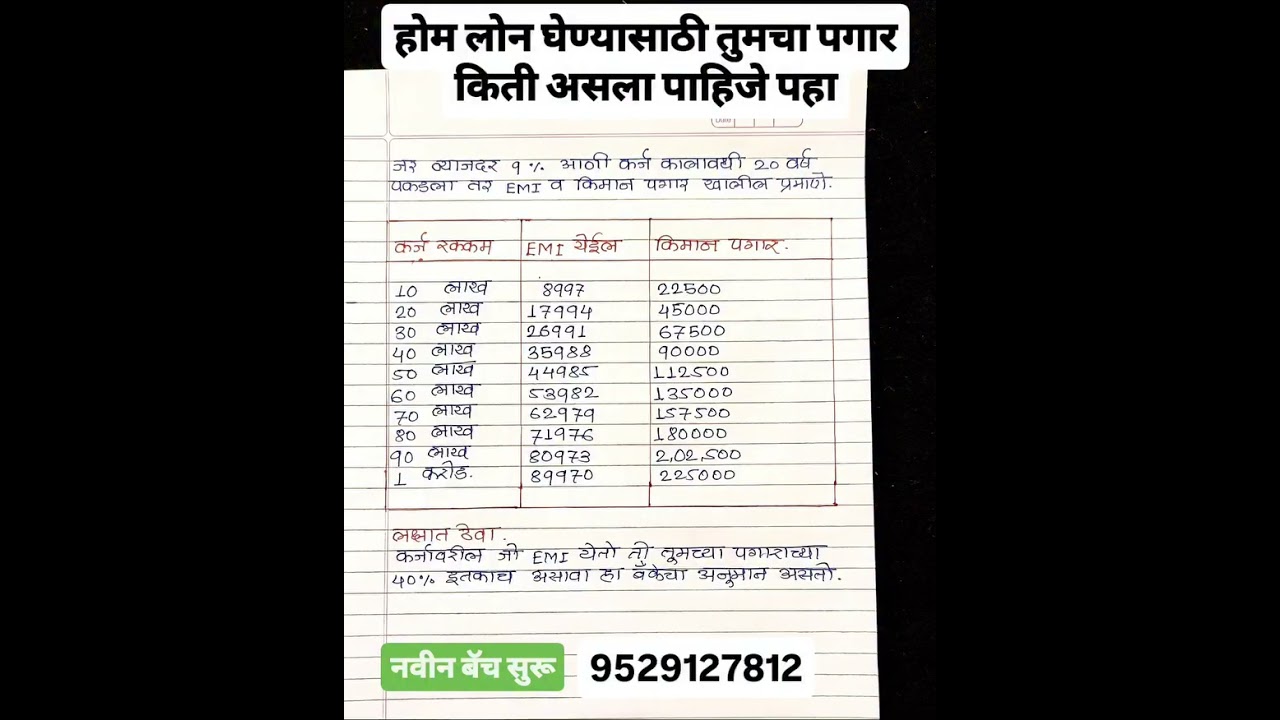 होम लोन घेण्यासाठी तुमचा पगार
किती असला पाहिजे पहा
Date
जर व्याजदर 9% आणी कर्ज कालावधी 20 वर्ष
पकडला तर EMI व किमान पगार खालील प्रमाणे.
कर्ज रक्कम EMI येईल किमान पगार.
10 लाख 8997 22500
20 लाख 17994 45000
30 लाख 26991 67500
40 लाख 35988 90000
50 लाख 44985 112500
60 लाख 53982 135000
70 लाख 62979 157500
80 लाख 71976 180000
90 लाख 80973 2,02,500
1 करोड. 89970 225000
लक्षात ठेवा.
कर्जावरील जो EMI येतो तो तुमच्या पगाराच्या
40% इतकाच असावा हा बँकेचा अनुमान असतो.
नवीन बॅच सुरू 9529127812